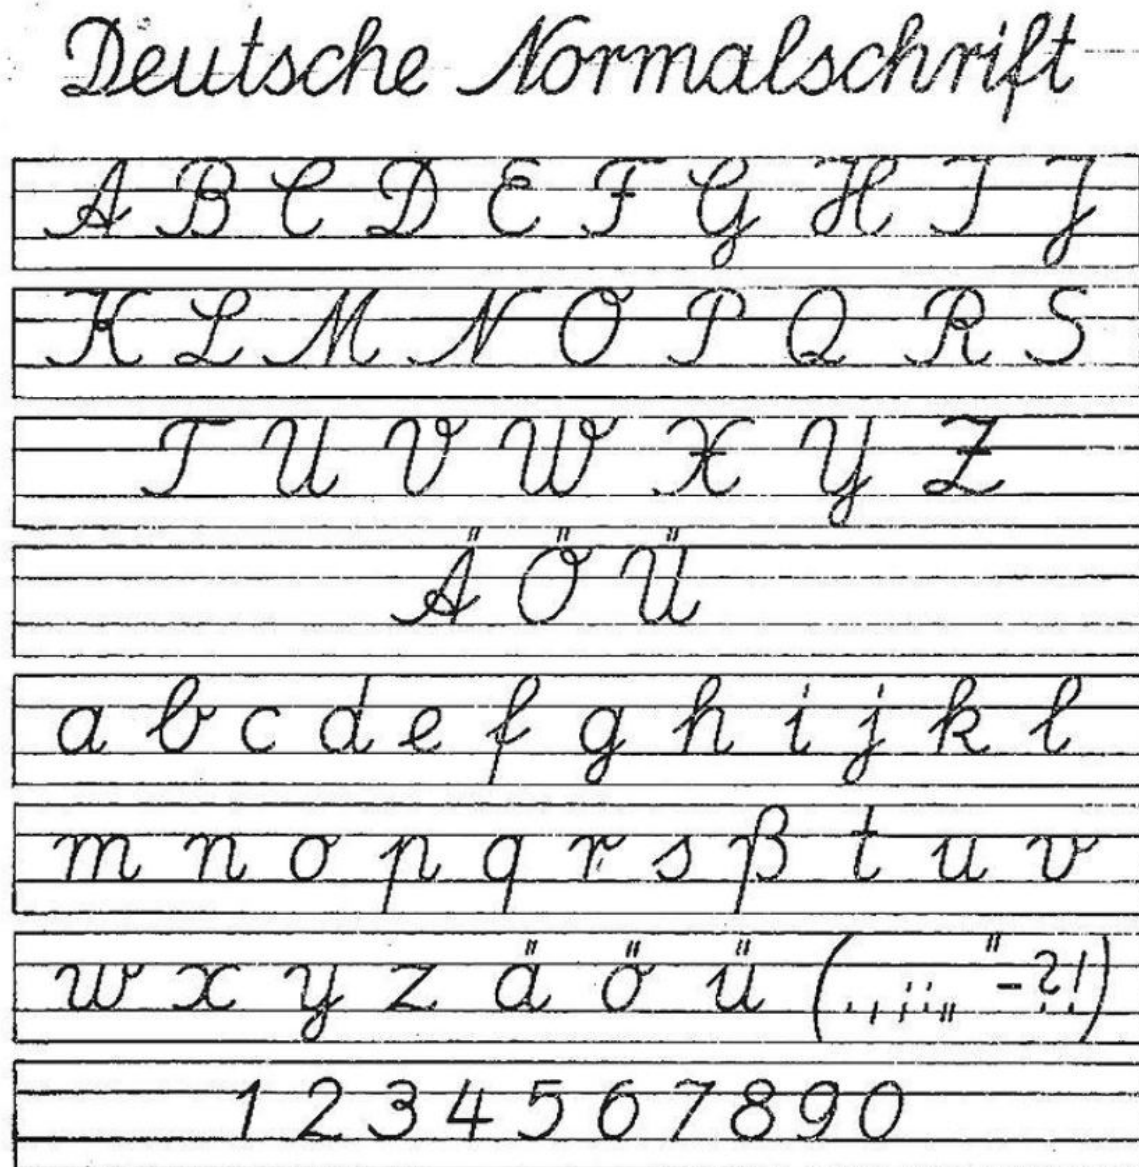 Deutsche Normalschrift
A B C D E F G H I J
K L M N O P Q R S
T U V W X Y Z
Ä Ö Ü
a b c d e f g h i j k l
m n o p q r s ß t u v
w x y z ä ö ü (. , ; : „ " - ? !)
1 2 3 4 5 6 7 8 9 0